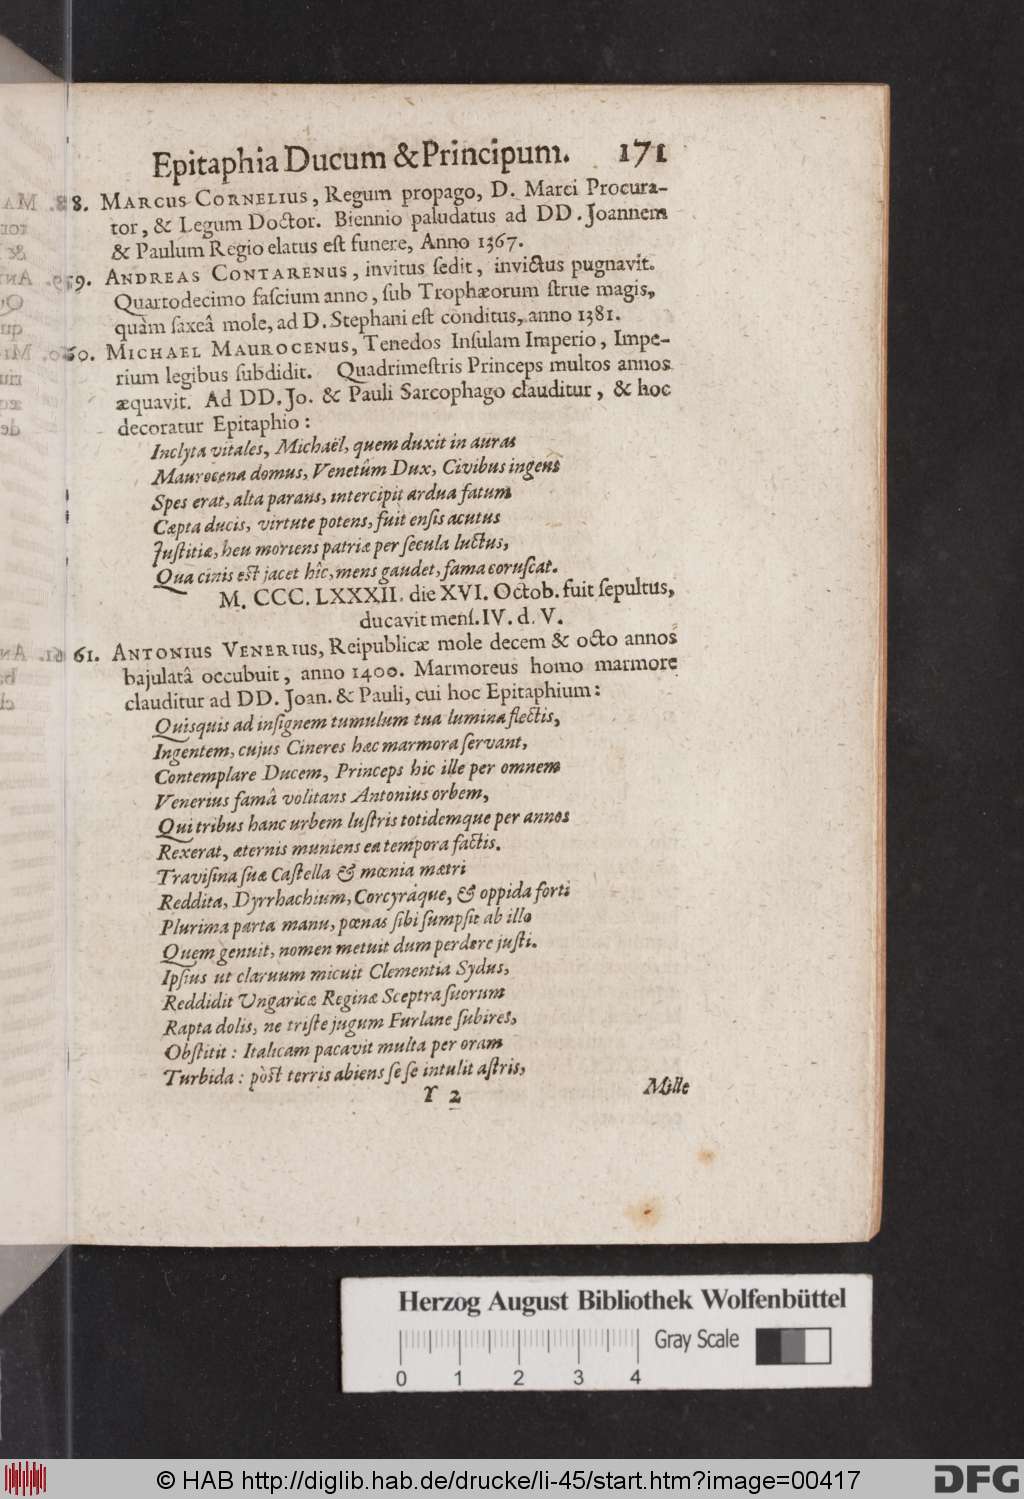 Epitaphia Ducum & Principum. 171
8. MARCUS CORNELIUS, Regum propago, D. Marci Procura-
tor, & Legum Doctor. Biennio paludatus ad DD. Joannem
& Paulum Regio elatus est funere, Anno 1367.
59. ANDREAS CONTARENUS, invitus sedit, invictus pugnavit.
Quartodecimo fascium anno, sub Trophæorum strue magis,
quàm saxeâ mole, ad D. Stephani est conditus, anno 1381.
60. MICHAEL MAUROCENUS, Tenedos Insulam Imperio, Impe-
rium legibus subdidit. Quadrimestris Princeps multos annos
æquavit. Ad DD. Jo. & Pauli Sarcophago clauditur, & hoc
decoratur Epitaphio:
Inclyta vitales, Michaël, quem duxit in auras
Maurocena domus, Venetûm Dux, Civibus ingens
Spes erat, alta parans, intercipit ardua fatum
Cæpta ducis, virtute potens, fuit ensis acutus
Justitiæ, heu moriens patriæ per secula luctus,
Qua cinis est jacet hîc, mens gaudet, fama coruscat.
M. CCC. LXXXII. die XVI. Octob. fuit sepultus,
ducavit mens. IV. d. V.
61. ANTONIUS VENERIUS, Reipublicæ mole decem & octo annos
bajulatâ occubuit, anno 1400. Marmoreus homo marmore
clauditur ad DD. Joan. & Pauli, cui hoc Epitaphium:
Quisquis ad insignem tumulum tua lumina flectis,
Ingentem, cujus Cineres hæc marmora servant,
Contemplare Ducem, Princeps hic ille per omnem
Venerius famâ volitans Antonius orbem,
Qui tribus hanc urbem lustris totidemque per annos
Rexerat, æternis muniens ea tempora factis.
Travisina suæ Castella & mœnia matri
Reddita, Dyrrhachium, Corcyráque, & oppida forti
Plurima parta manu, pœnas sibi sumpsit ab illo
Quem genuit, nomen metuit dum perdere justi.
Ipsius ut claruum micuit Clementia Sydus,
Reddidit Ungaricæ Reginæ Sceptra suorum
Rapta dolis, ne triste jugum Furlane subires,
Obstitit: Italicam pacavit multa per oram
Turbida: pòst terris abiens se se intulit astris,
Y 2 Mille
Herzog August Bibliothek Wolfenbüttel
Gray Scale
0 1 2 3 4
© HAB http://diglib.hab.de/drucke/li-45/start.htm?image=00417
DFG